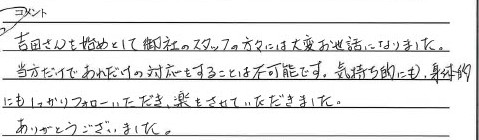 コメント
吉田さんを始めとして御社のスタッフの方々には大変お世話になりました。
当方だけであれだけの対応をすることは不可能です。気持ち的にも、身体的
にもしっかりフォローいただき、楽をさせていただきました。
ありがとうございました。